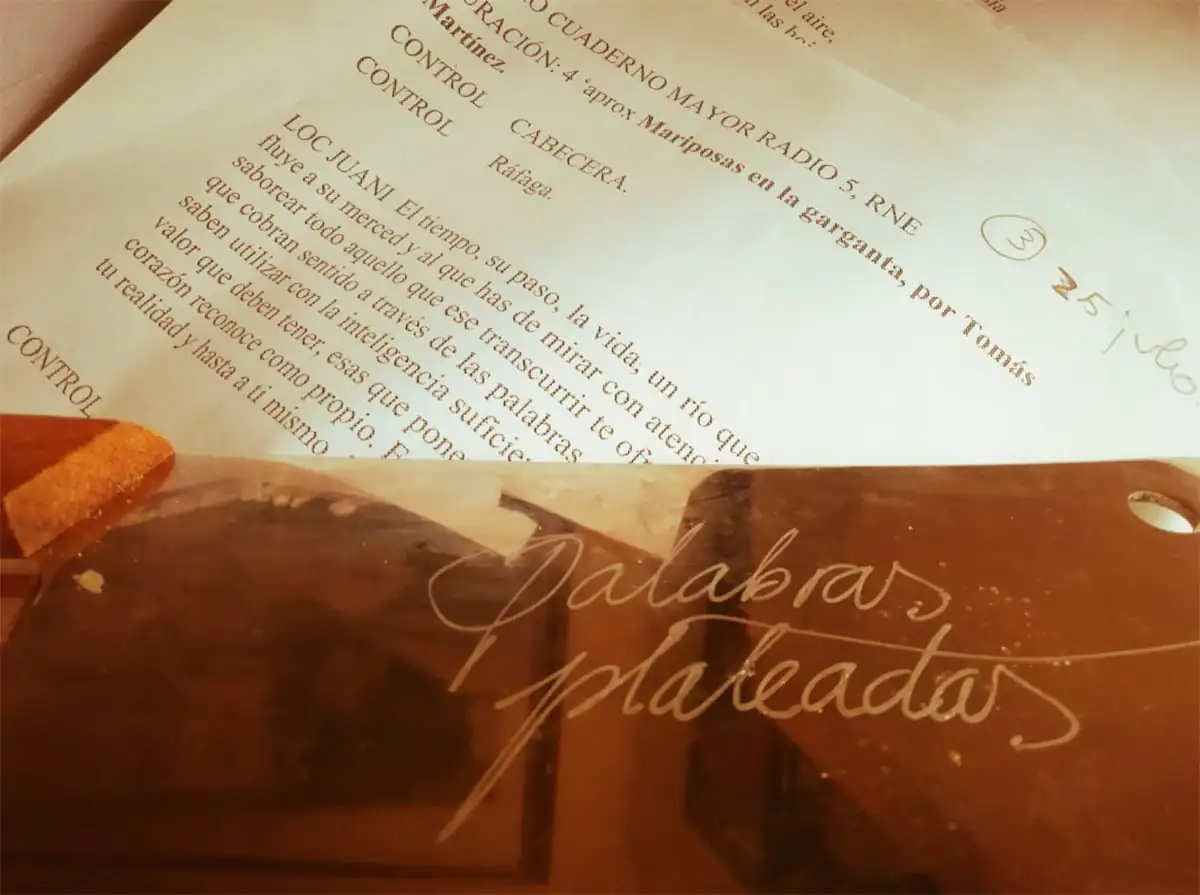 el aire,
O CUADERNO MAYOR RADIO 5, RNE
URACIÓN: 4 ‘aprox Mariposas en la garganta, por Tomás
Martínez.
CONTROL CABECERA.
CONTROL Ráfaga.
LOC JUANI El tiempo, su paso, la vida, un río que
fluye a su merced y al que has de mirar con atenc
saborear todo aquello que ese transcurrir te ofr
que cobran sentido a través de las palabras
saben utilizar con la inteligencia suficie
valor que deben tener, esas que pone
corazón reconoce como propio. E
tu realidad y hasta a ti mismo
CONTROL
3 25 julio
Palabras
plateadas